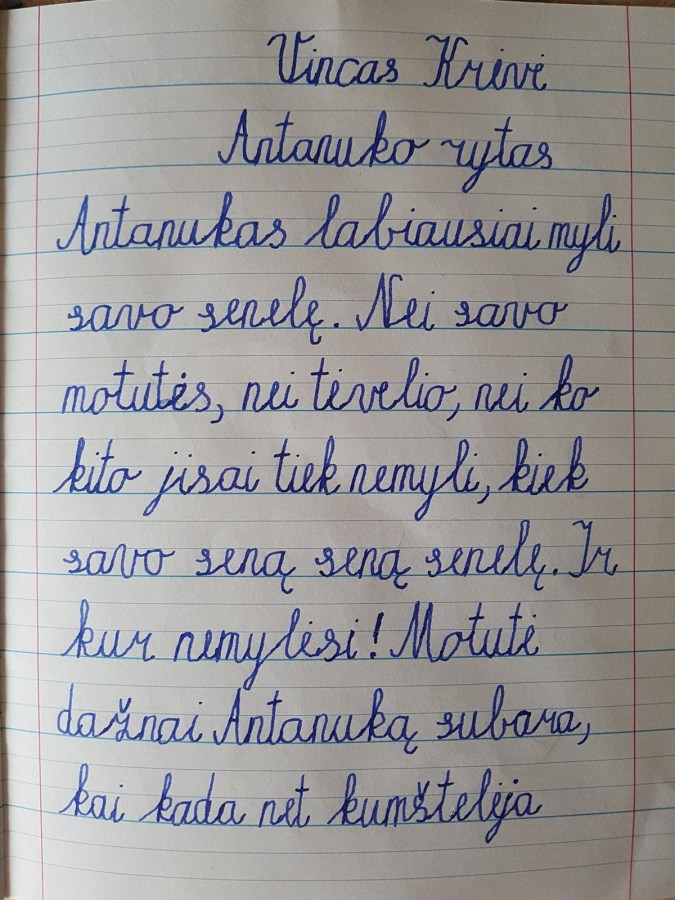 Vincas Krėvė
Antanuko rytas
Antanukas labiausiai myli
savo senelę. Nei savo
motutės, nei tėvelio, nei ko
kito jisai tiek nemyli, kiek
savo seną seną senelę. Ir
kur nemylėsi! Motutė
dažnai Antanuką subara,
kai kada net kumštelėja